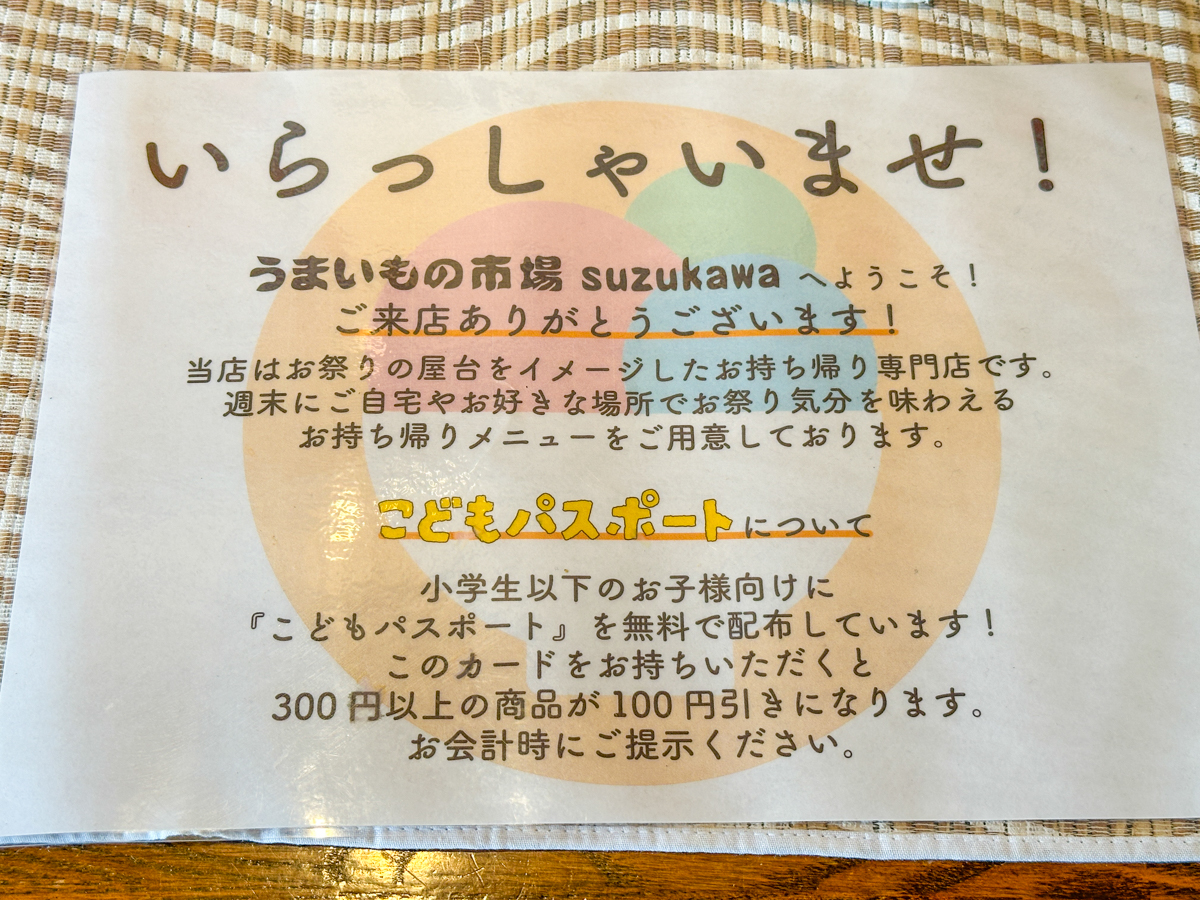 いらっしゃいませ！
うまいもの市場 suzukawa へようこそ！
ご来店ありがとうございます！
当店はお祭りの屋台をイメージしたお持ち帰り専門店です。
週末にご自宅やお好きな場所でお祭り気分を味わえる
お持ち帰りメニューをご用意しております。
こどもパスポートについて
小学生以下のお子様向けに
『こどもパスポート』を無料で配布しています！
このカードをお持ちいただくと
300円以上の商品が100円引きになります。
お会計時にご提示ください。